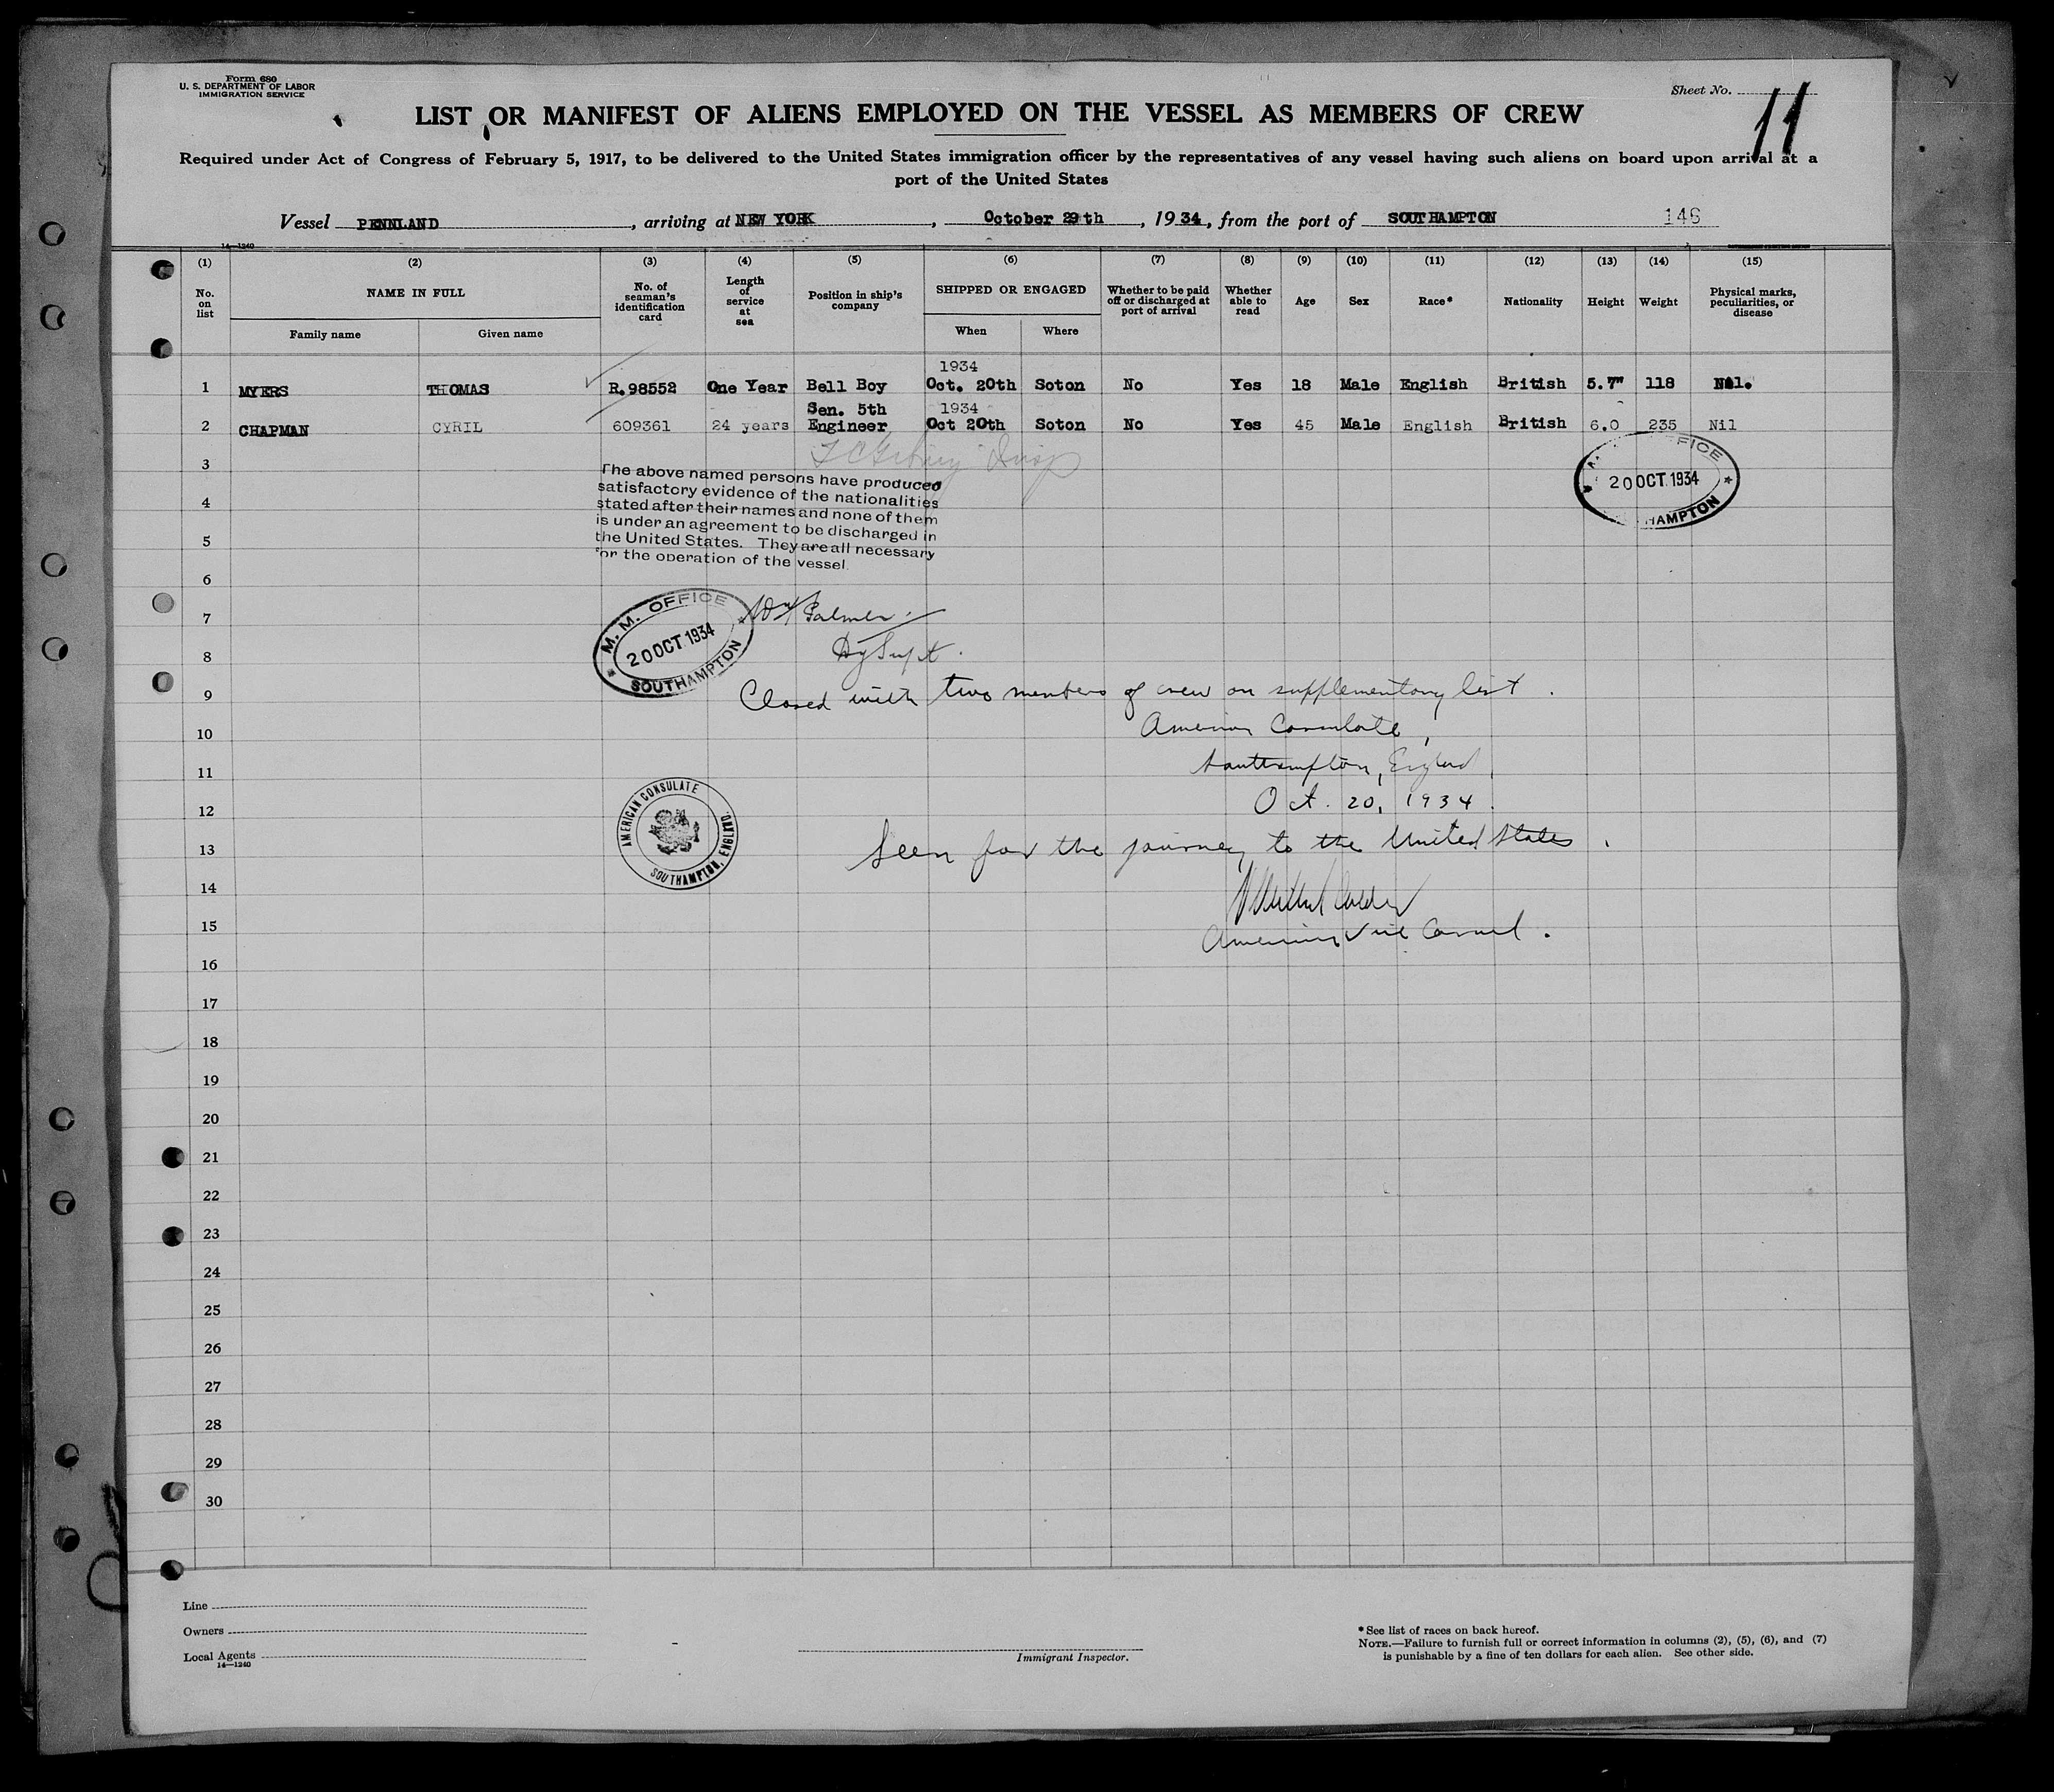 Form 680
U. S. DEPARTMENT OF LABOR
IMMIGRATION SERVICE
Sheet No. 11
LIST OR MANIFEST OF ALIENS EMPLOYED ON THE VESSEL AS MEMBERS OF CREW
Required under Act of Congress of February 5, 1917, to be delivered to the United States immigration officer by the representatives of any vessel having such aliens on board upon arrival at a
port of the United States
Vessel PENNLAND, arriving at NEW YORK, October 29th, 1934, from the port of SOUTHAMPTON 146
14—1240
(1) (2) (3) (4) (5) (6) (7) (8) (9) (10) (11) (12) (13) (14) (15)
No. on list
NAME IN FULL
Family name Given name
No. of seaman's identification card
Length of service at sea
Position in ship's company
SHIPPED OR ENGAGED
When Where
Whether to be paid off or discharged at port of arrival
Whether able to read
Age
Sex
Race*
Nationality
Height
Weight
Physical marks, peculiarities, or disease
1934
1 MYERS THOMAS R.98552 One Year Bell Boy Oct. 20th Soton No Yes 18 Male English British 5.7" 118 Nil.
Sen. 5th 1934
2 CHAPMAN CYRIL 609361 24 years Engineer Oct 20th Soton No Yes 45 Male English British 6.0 235 Nil
3
The above named persons have produced
satisfactory evidence of the nationalities
stated after their names and none of them
is under an agreement to be discharged in
the United States. They are all necessary
for the operation of the vessel.
OFFICE
20 OCT 1934
HAMPTON
4
5
6
7
M. M. OFFICE
20 OCT 1934
SOUTHAMPTON
Palmer
Dy Supt.
8
Closed with two members of crew on supplementary list.
9
American Consulate,
10
Southampton, England
11
Oct. 20, 1934.
12
AMERICAN CONSULATE
SOUTHAMPTON, ENGLAND.
Seen for the journey to the United States.
13
14
American Vice Consul.
15
16
17
18
19
20
21
22
23
24
25
26
27
28
29
30
Line
Owners
Local Agents
14—1240
Immigrant Inspector.
*See list of races on back hereof.
NOTE.—Failure to furnish full or correct information in columns (2), (5), (6), and (7)
is punishable by a fine of ten dollars for each alien. See other side.